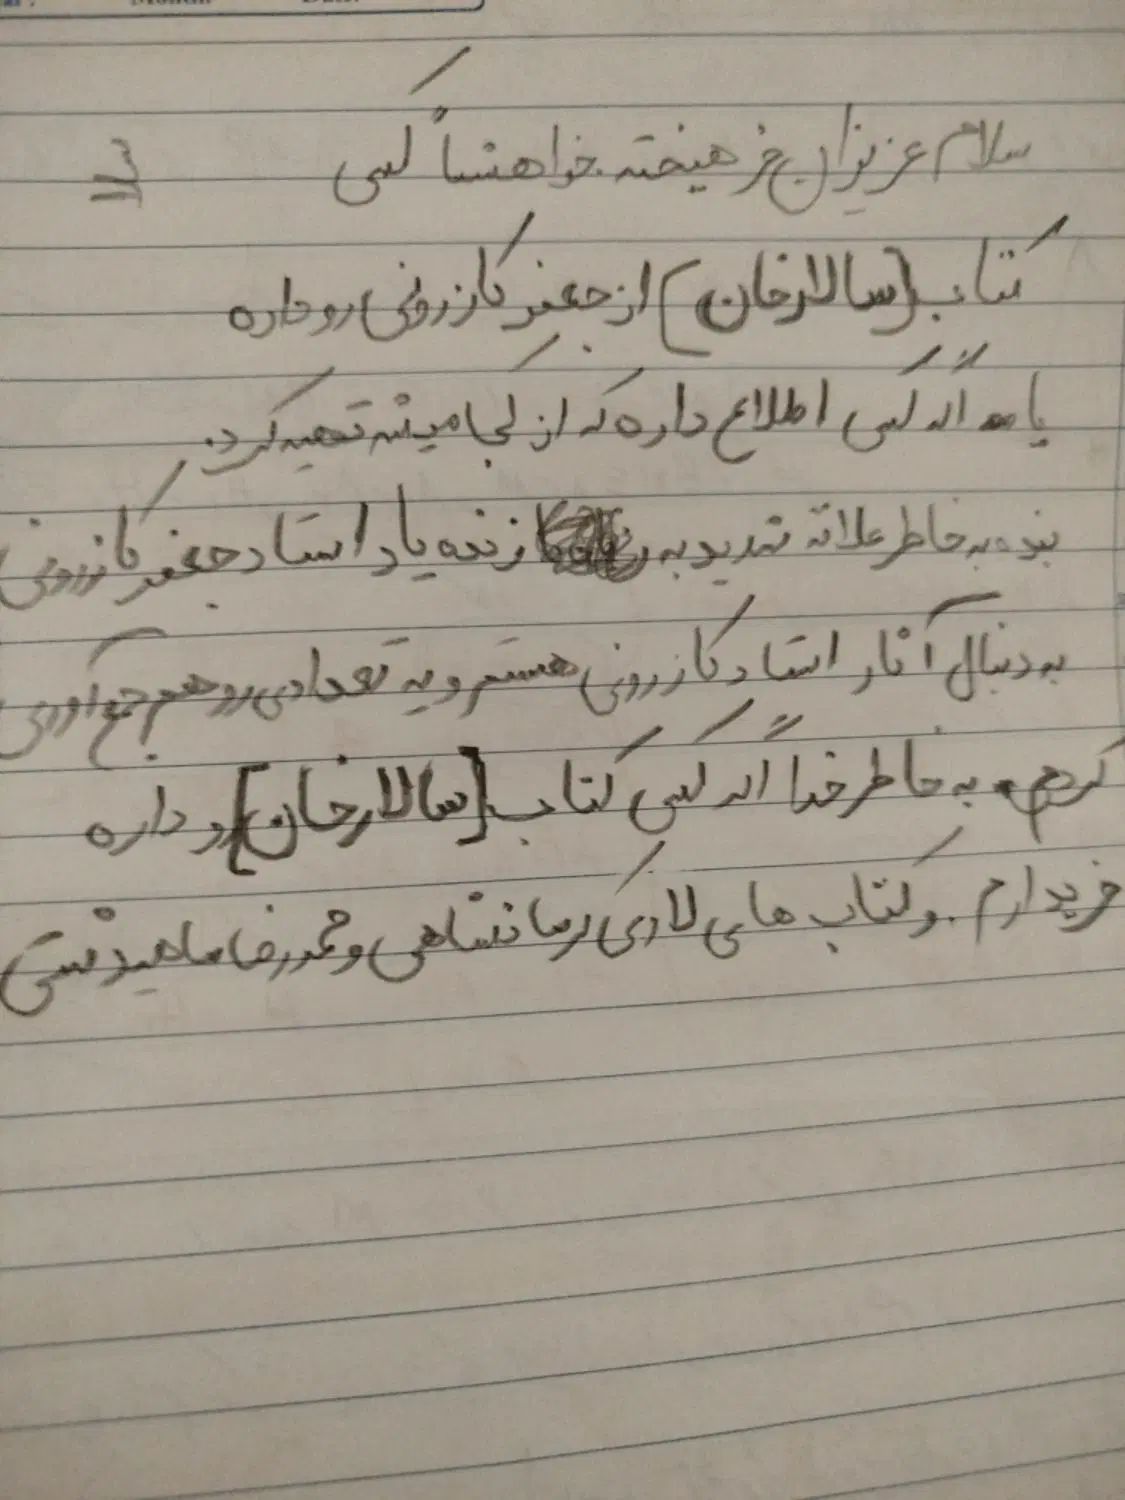 سلام عزیزان فرهیخته خواهشاً کسی
کتاب [سالارخان] از جعفر کازرونی رو داره
یا اگر کسی اطلاع داره که از کجا میشه تهیه کرد.
بنده به خاطر علاقه شدید به زنده یاد استاد جعفر کازرونی
به دنبال آثار استاد کازرونی هستم و یه تعدادی رو هم جمع آوری
کردم. به خاطر خدا اگر کسی کتاب [سالارخان] رو داره
خریدارم. و کتاب های لاری کرمانشاهی و محمدرضا ماهیدشتی